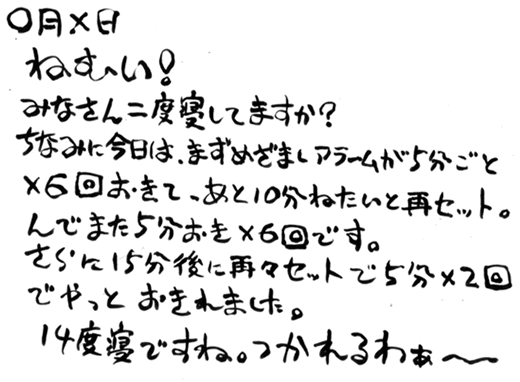 〇月×日
ねむい!
みなさん二度寝してますか?
ちなみに今日は、まずめざましアラームが5分ごと
×6回おきて、あと10分ねたいと再セット。
んでまた5分おき×6回です。
さらに15分後に再々セットで5分×2回
でやっとおきれました。
14度寝ですね。つかれるわぁ〜